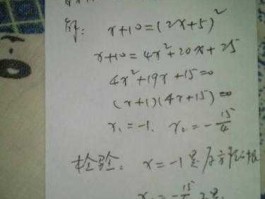 解: x+10=(2x+5)²
x+10=4x²+20x+25
4x²+19x+15=0
(x+1)(4x+15)=0
x₁=-1. x₂=-15/4
检验: x=-1是原方程的根
x=-15/4